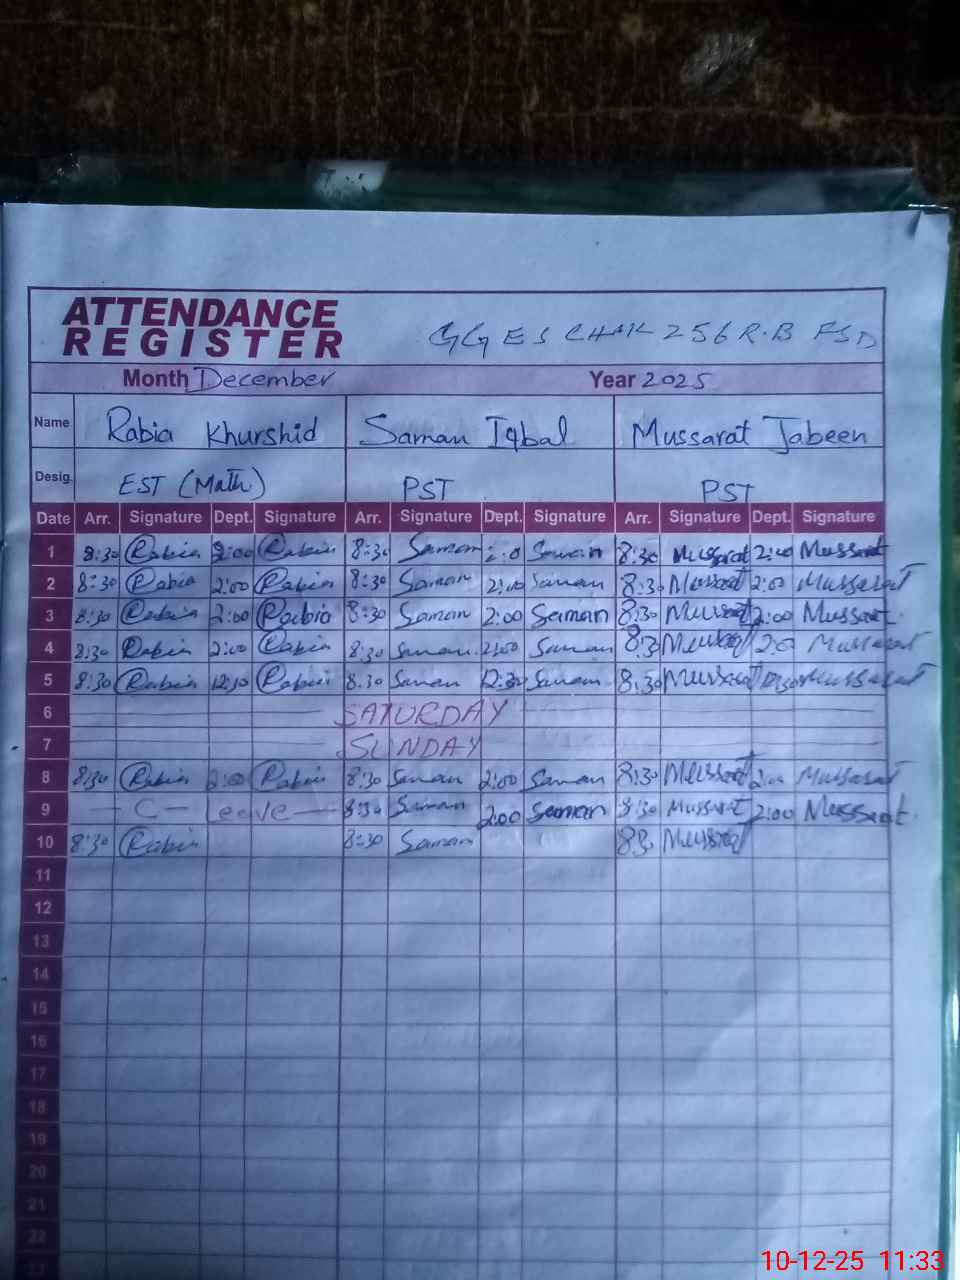 ATTENDANCE
REGISTER
GGES CHAK 256 R.B FSD
Month December Year 2025
Name Rabia Khurshid Saman Iqbal Mussarat Jabeen
Desig. EST (Math) PST PST
Date Arr. Signature Dept. Signature Arr. Signature Dept. Signature Arr. Signature Dept. Signature
1 8:30 Rabia 2:00 Rabia 8:30 Saman Saman 8:30 Mussarat 2:00 Mussarat
2 8:30 Rabia 2:00 Rabia 8:30 Saman 2:00 Saman 8:30 Mussarat 2:00 Mussarat
3 8:30 Rabia 2:00 Rabia 8:30 Saman 2:00 Saman 8:30 Mussarat 2:00 Mussarat
4 8:30 Rabia 2:00 Rabia 8:30 Saman 2:00 Saman 8:30 Mussarat Mussarat
5 8:30 Rabia 12:30 Rabia 8:30 Saman 12:30 Saman 8:30 Mussarat 12:30 Mussarat
6 SATURDAY
7 SUNDAY
8 8:30 Rabia 2:00 Rabia 8:30 Saman 2:00 Saman 8:30 Mussarat 2:00 Mussarat
9 C - Leave 8:30 Saman 2:00 Saman 8:30 Mussarat 2:00 Mussarat
10 8:30 Rabia 8:30 Saman 8:30 Mussarat
11
12
13
14
15
16
17
18
19
20
21
22
23
10-12-25 11:33